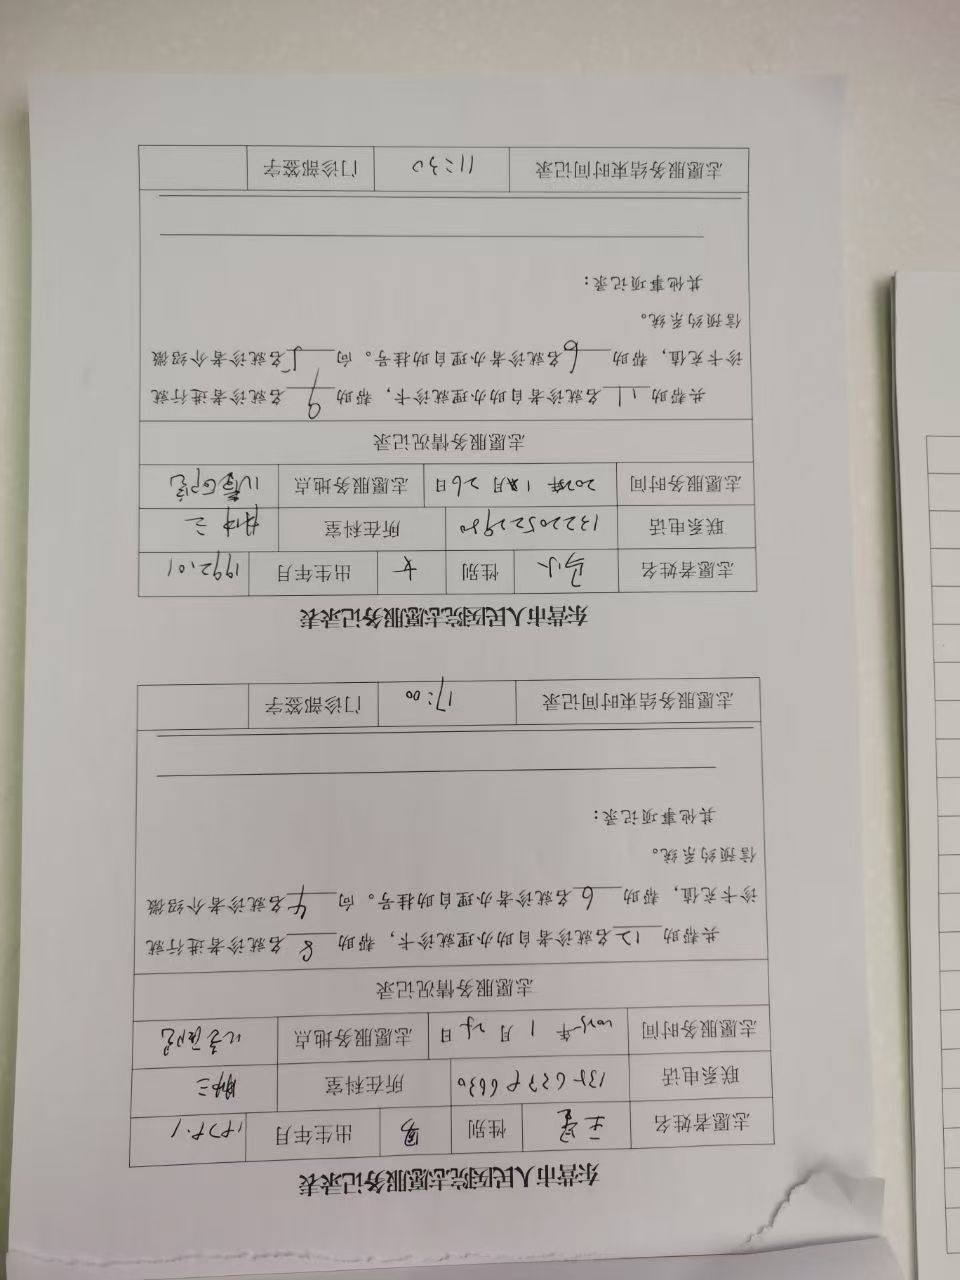 东营市人民医院志愿服务记录表
志愿者姓名 王星 性别 男 出生年月
联系电话 所在科室
志愿服务时间 年 1 月 日 志愿服务地点
志愿服务情况记录
共帮助 12 名就诊者自助办理就诊卡，帮助 8 名就诊者进行就
诊卡充值，帮助 6 名就诊者办理自助挂号。向 4 名就诊者介绍微
信预约系统。
其他事项记录：
志愿服务结束时间记录 17:00 门诊部签字
东营市人民医院志愿服务记录表
志愿者姓名 性别 女 出生年月 1992.01
联系电话 13220522980 所在科室
志愿服务时间 年 1 月 26 日 志愿服务地点
志愿服务情况记录
共帮助 11 名就诊者自助办理就诊卡，帮助 9 名就诊者进行就
诊卡充值，帮助 6 名就诊者办理自助挂号。向 5 名就诊者介绍微
信预约系统。
其他事项记录：
志愿服务结束时间记录 11:30 门诊部签字